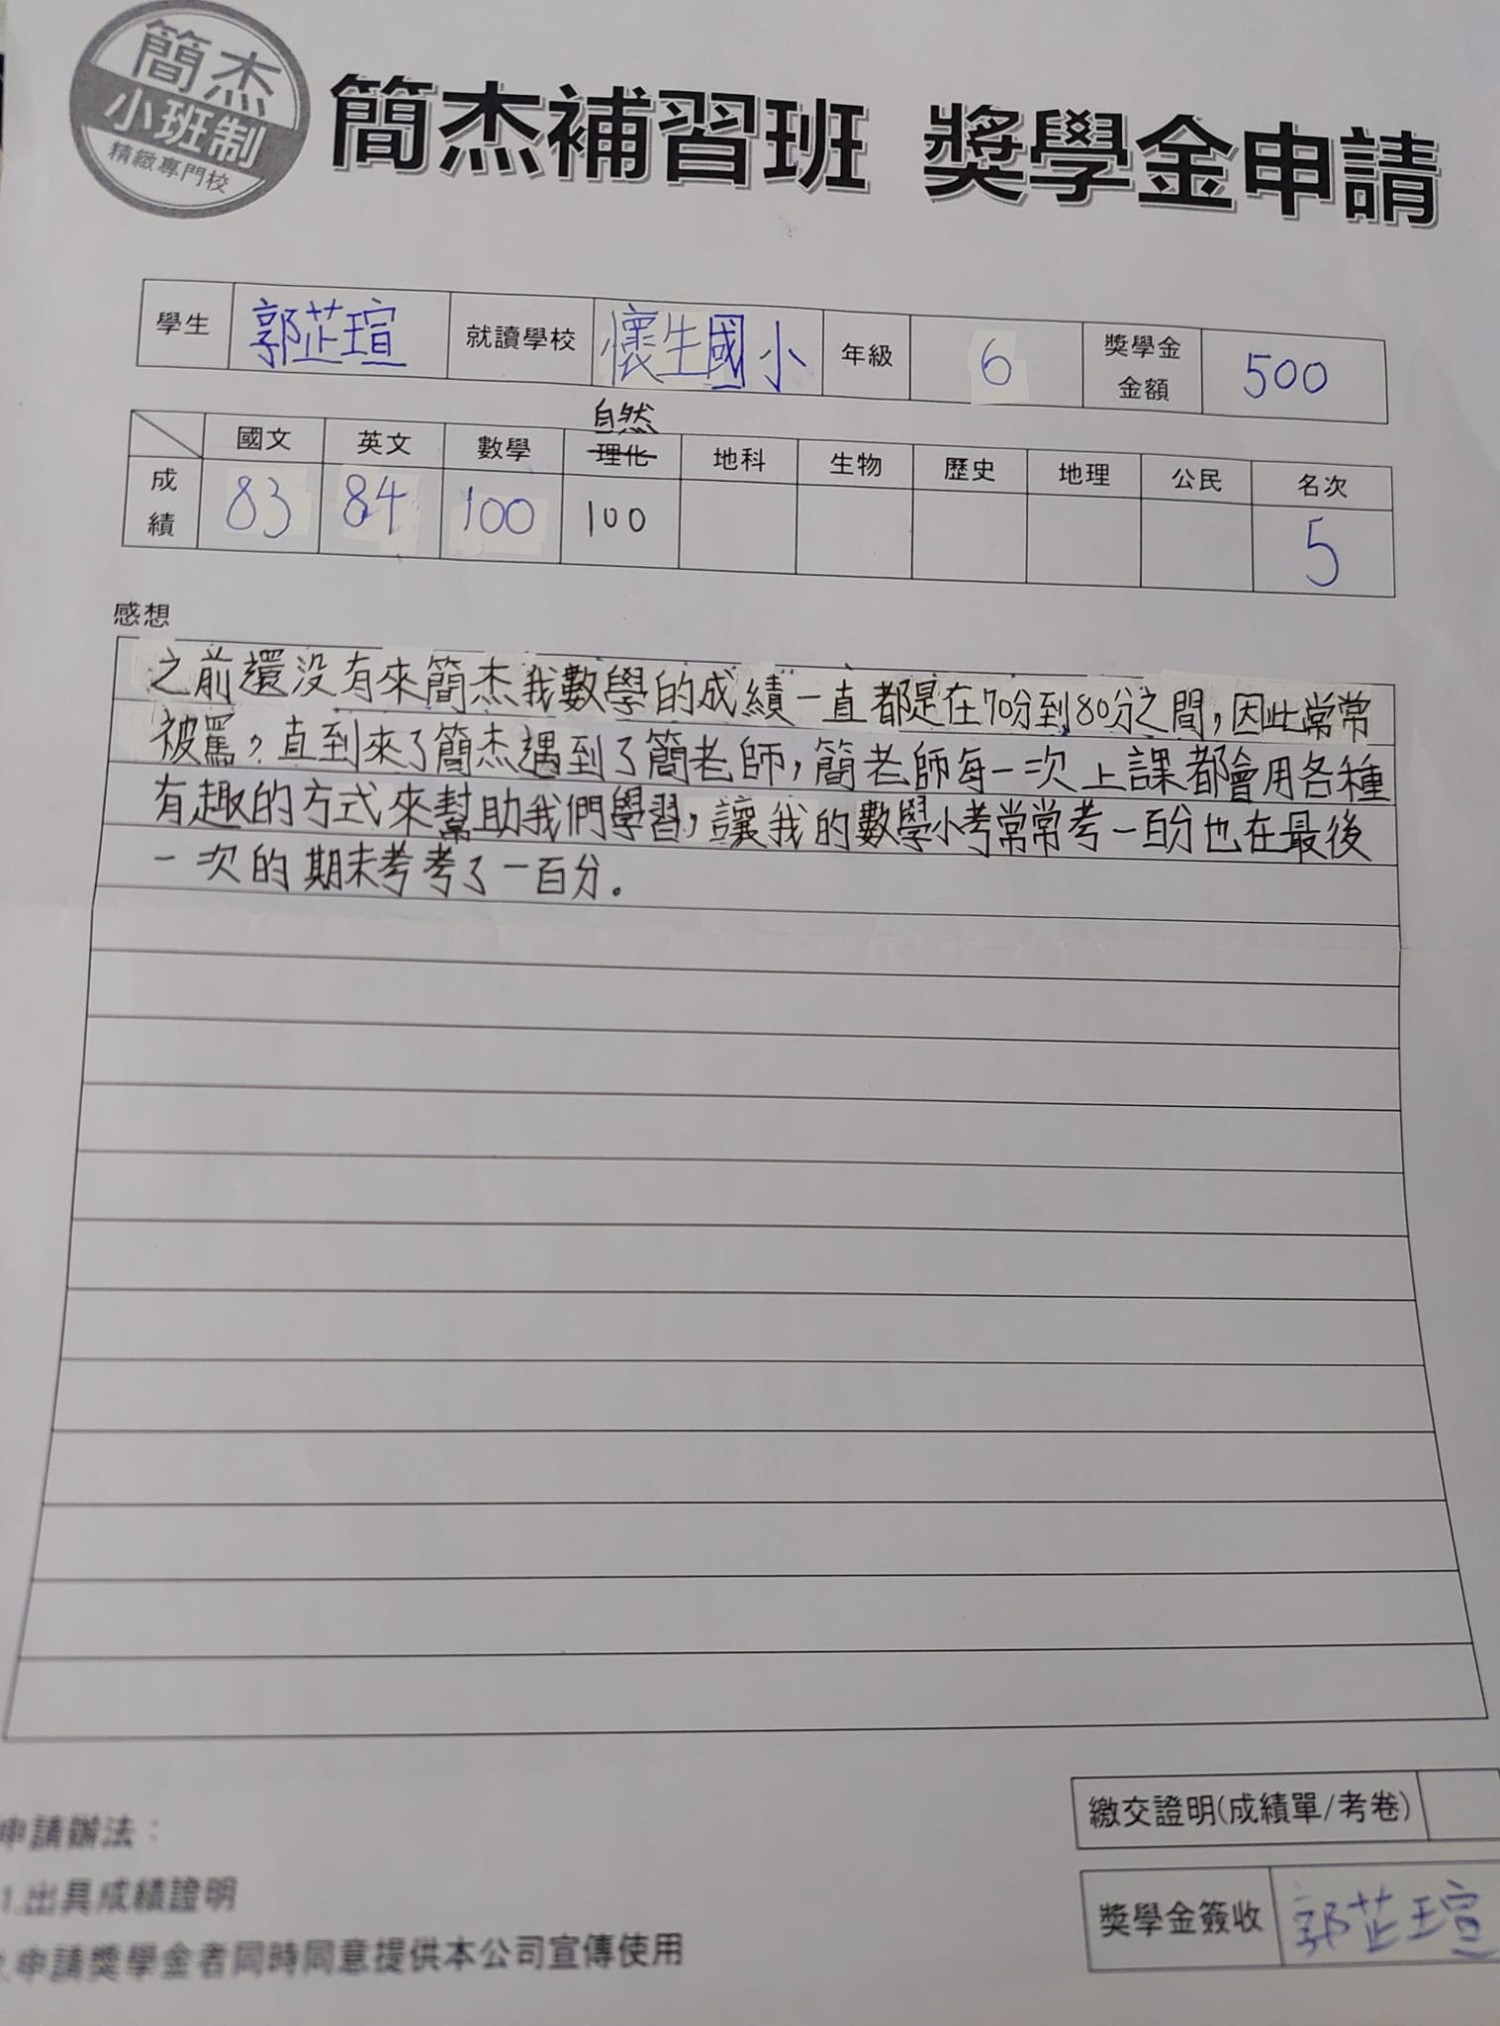 簡杰
小班制
精緻專門校
簡杰補習班 獎學金申請
學生 郭芷瑄 就讀學校 懷生國小 年級 6 獎學金金額 500
自然
國文 英文 數學 理化 地科 生物 歷史 地理 公民 名次
成績 83 84 100 100 5
感想
之前還沒有來簡杰我數學的成績一直都是在70分到80分之間,因此常常
被罵,直到來了簡杰遇到了簡老師,簡老師每一次上課都會用各種
有趣的方式來幫助我們學習,讓我的數學小考常常考一百分也在最後
一次的期末考考了一百分。
繳交證明(成績單/考卷)
獎學金簽收 郭芷瑄
申請辦法：
1.出具成績證明
2.申請獎學金者同時同意提供本公司宣傳使用